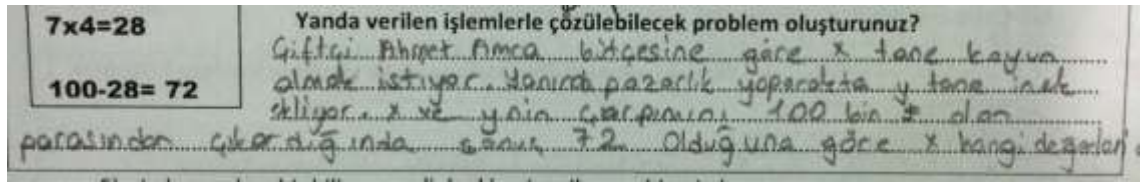 7x4=28
Yanda verilen işlemlerle çözülebilecek problem oluşturunuz?
Çiftçi Ahmet Amca bütçesine göre x tane koyun
100-28= 72
almak istiyor. Yanında pazarlık yaparakta y tane inek
ekliyor. x ve y nin çarpımını 100 bin ₺ olan
parasından çıkardığında sonuç 72 Olduğuna göre x hangi değerleri